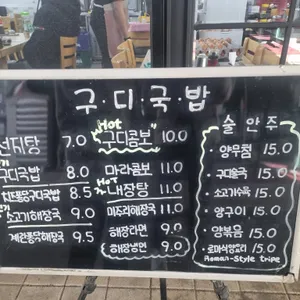 구·디·국밥
선지탕 7.0
구디국밥 8.0
8.5
소고기해장국 9.0
9.5
Hot
"구디콤보" 10.0
마라콤보 11.0
Hot
내장탕 11.0
미주리해장국 11.0
해장라면 9.0
해장냉면 9.0
술안주
· 양무침 15.0
· 구디술국 15.0
· 소고기수육 15.0
· 양구이 15.0
· 양볶음 15.0
· 로마식양요리 15.0
Roman-Style tripe